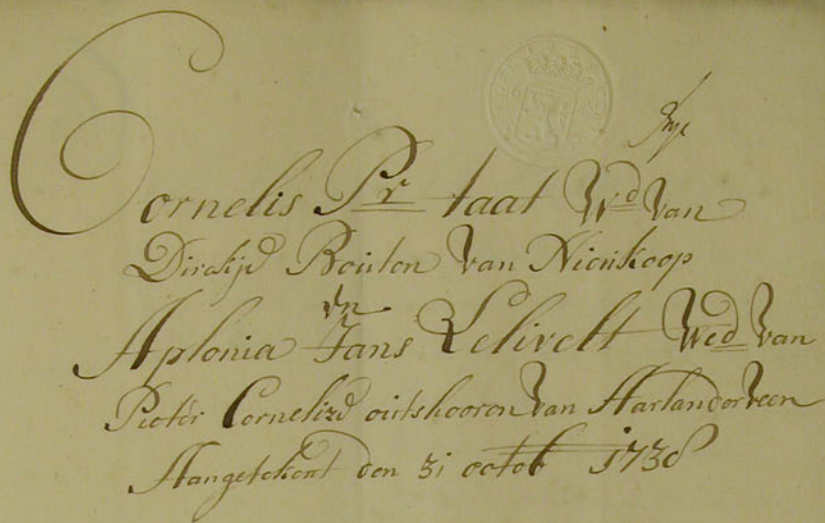 Cornelis Pr taat Wd van
Dirckje Bouton van Nieukoop
en
Aplonia Jans Lelivelt Wed van
Pieter Cornelisz outshooren van Aarlanderveen
Aangetekent den 31 octob 1738